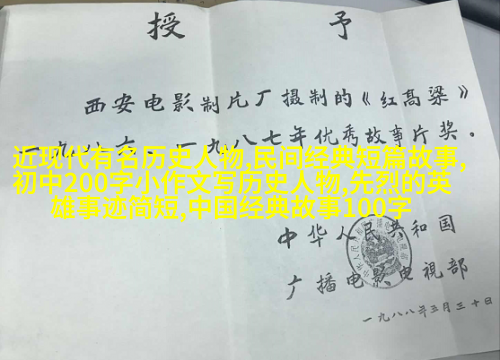 授 予
西安电影制片厂摄制的《红高梁》
一九八六、一九八七年优秀故事片奖。
近现代有名历史人物,民间经典短篇故事,
初中200字小作文写历史人物,先烈的英
雄事迹简短,中国经典故事100字
中华人民共和国
广播电影电视部
一九八八年三月三十日